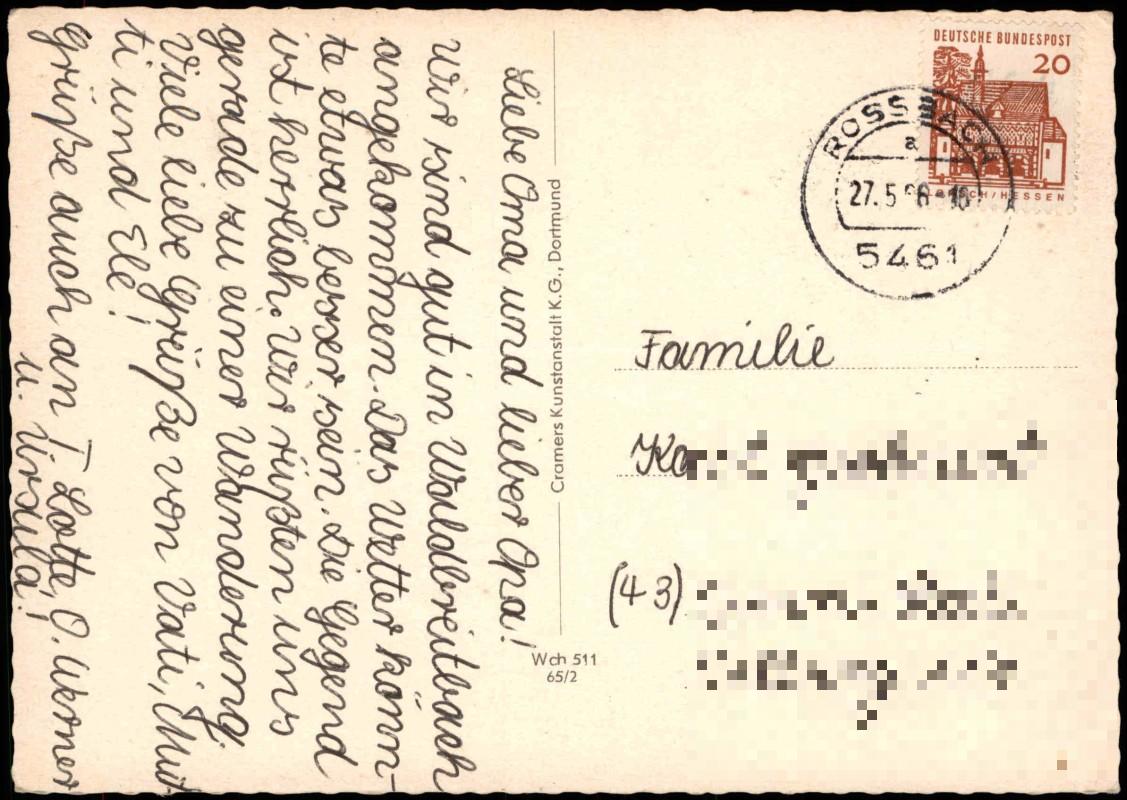 Liebe Oma und lieber Opa!
Wir sind gut in Waldbreitbach
angekommen. Das Wetter könn-
te etwas besser sein. Die Gegend
ist herrlich. Wir rüßten uns
gerade zu einer Wanderung.
Viele liebe Grüße von Vati, Mut-
ti und Ele!
Grüße auch an T. Lotte, O. Werner
u. Ursula!
Cramers Kunstanstalt K.G., Dortmund
Wch 511
65/2
DEUTSCHE BUNDESPOST
20
LORSCH/HESSEN
ROSSBACH
a
27.5
5461
Familie
(43)